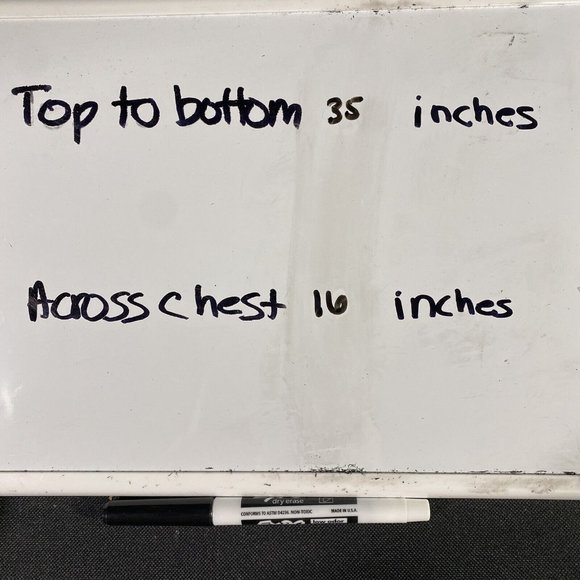 Top to bottom 35 inches
Across chest 16 inches
dry erase
CONFORMS TO ASTM D4236 NON-TOXIC MADE IN U.S.A.
low odor